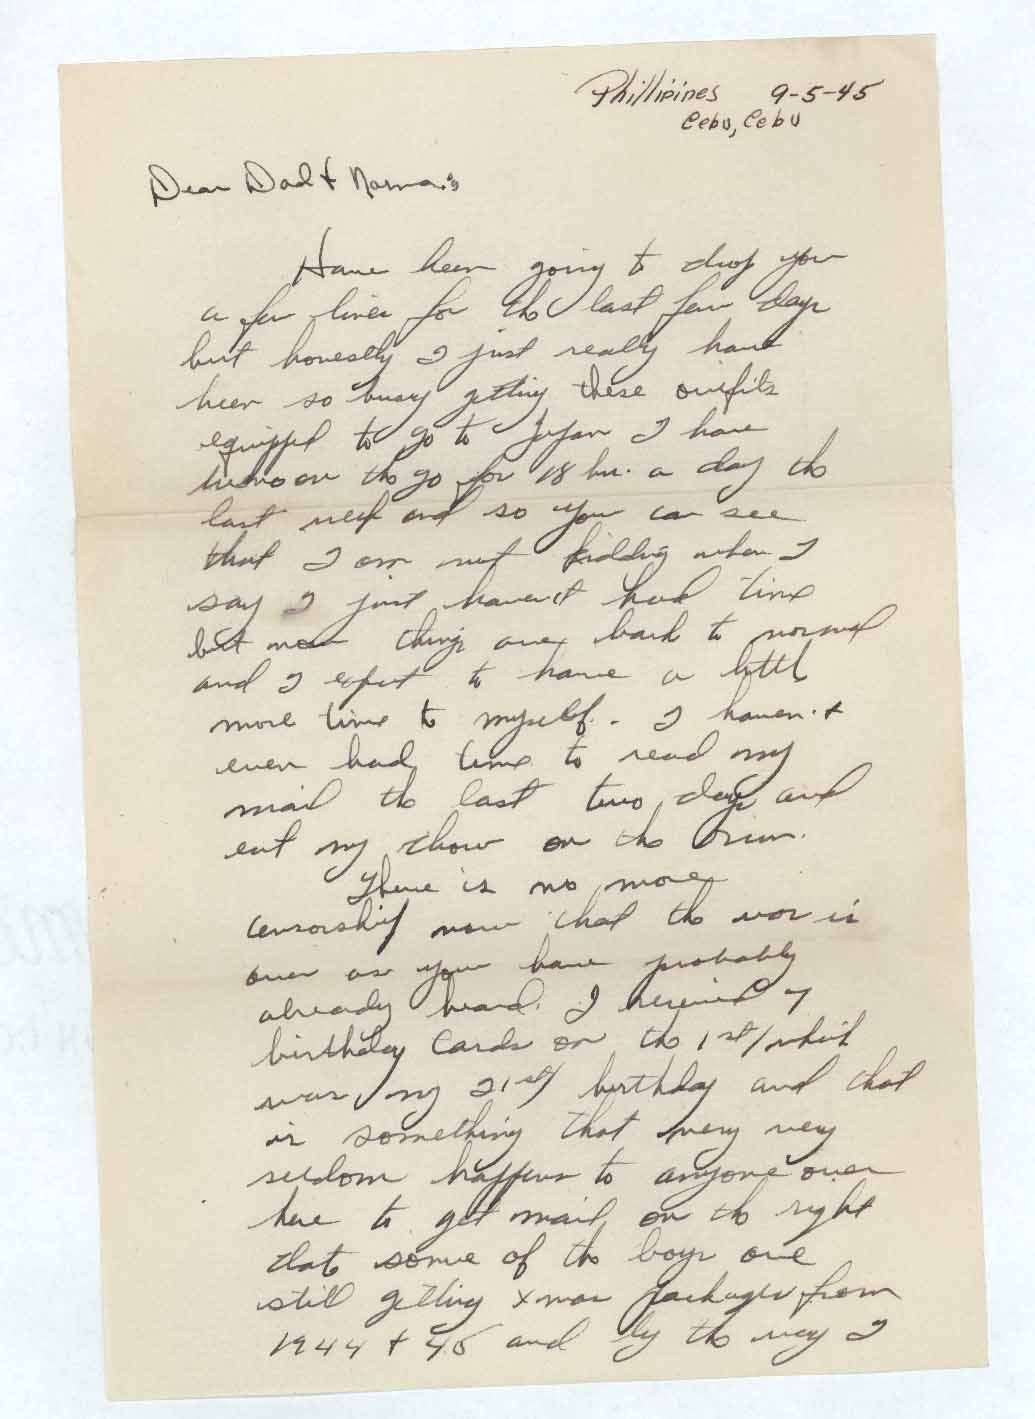 Phillipines 9-5-45
Cebu, Cebu
Dear Dad & Norma:
Have been going to drop you
a few lines for the last few days
but honestly I just really have
been so busy getting these outfits
equipped to go to Japan I have
been on the go for 18 hrs. a day the
last week and so you can see
that I am not kidding when I
say I just haven't had time
but now things are back to normal
and I expect to have a little
more time to myself. I haven't
even had time to read my
mail the last two days and
eat my chow on the run.
There is no more
censorship now that the war is
over as you have probably
already heard. I received 7
birthday Cards on the 1st/which
was my 21st/ birthday and that
is something that very very
seldom happens to anyone over
here to get mail on the right
date some of the boys are
still getting Xmas packages from
1944 & 45 and by the way I